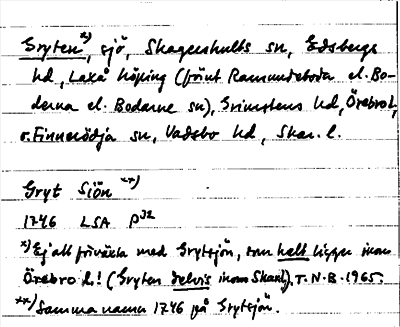 Gryten x), sjö, Skagershults sn, Edsbergs
hd, Laxå köping (förut Ramundeboda el. Bo-
derna el. Bodarne sn), Grimstens hd, Örebro l,
o. Finnerödja sn, Vadsbo hd, Skar. l.
Gryt Siön xx)
1746 LSA P32
x) Ej att förväxla med Grytsjön, som helt ligger inom
Örebro l.! (Gryten delvis inom Skarbl.). T.N.B. 1965.
xx) Samma namn 1746 på Grytsjön.